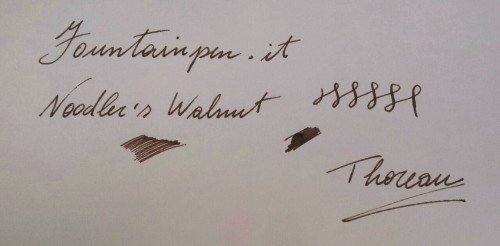 Fountainpen.it
Noodler's Walnut
Thoreau